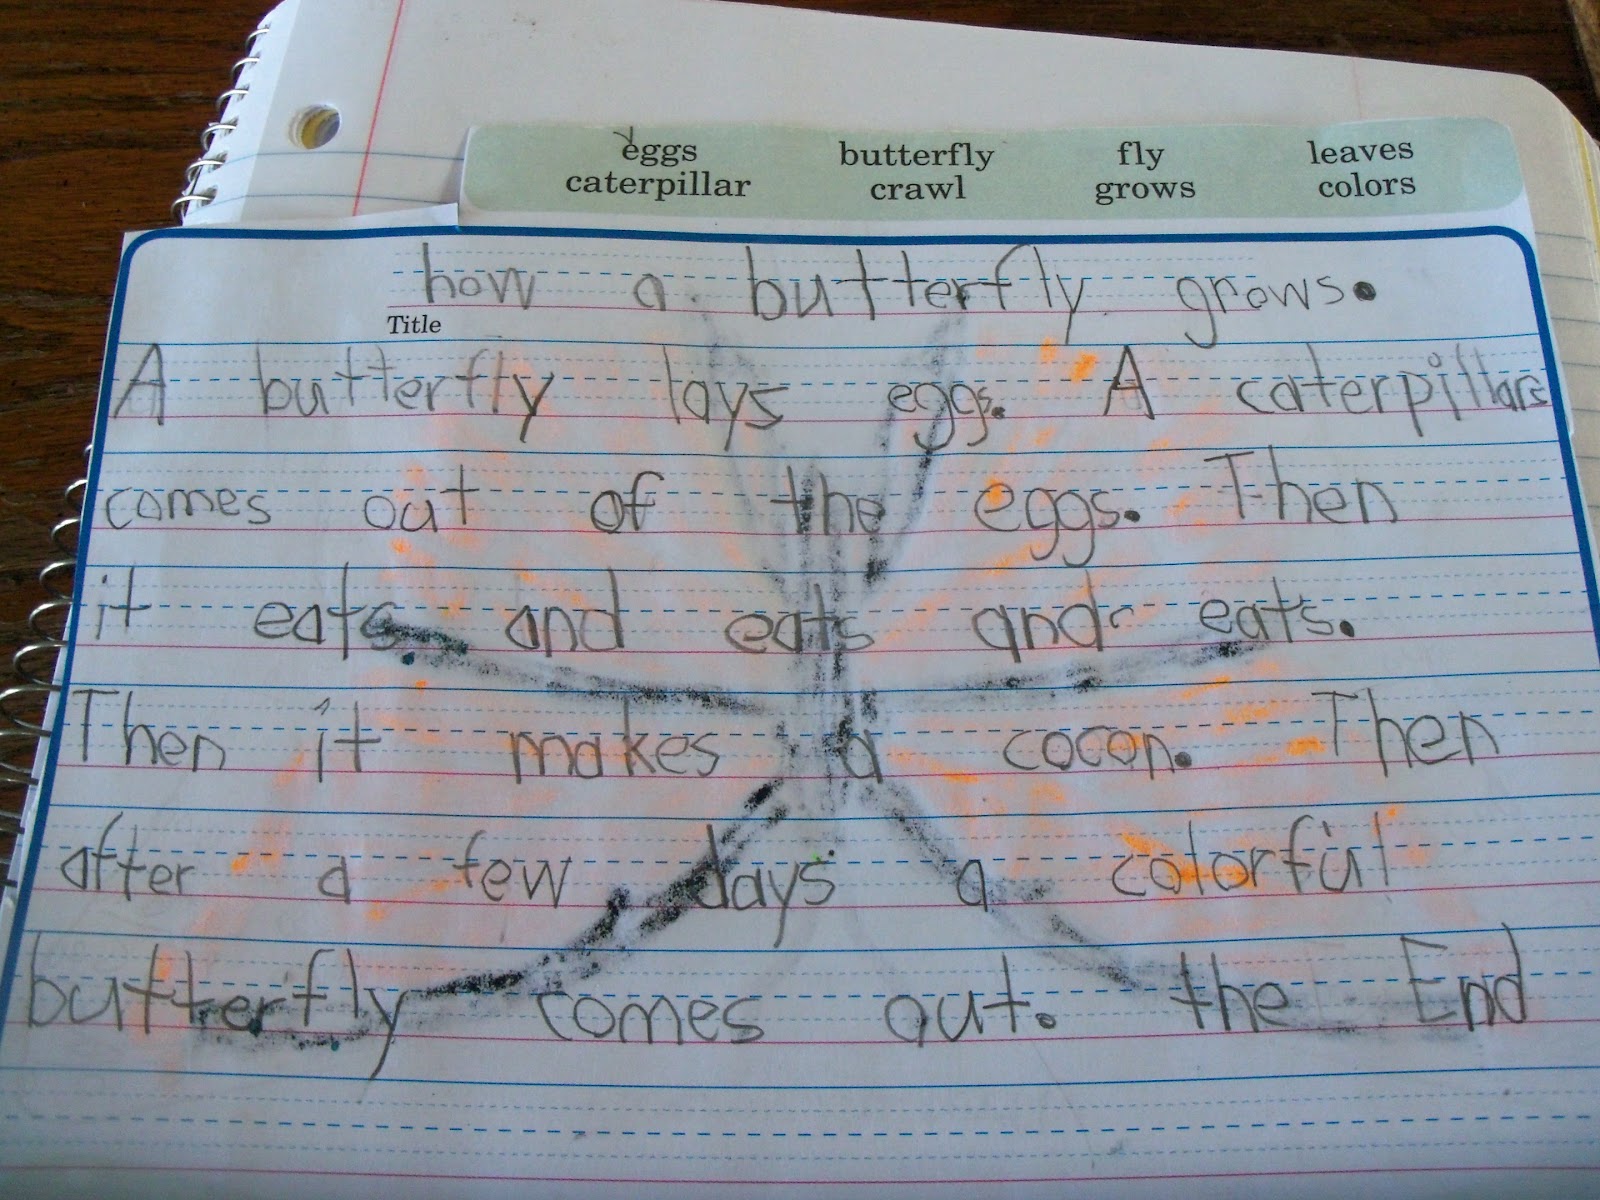 eggs butterfly fly leaves
caterpillar crawl grows colors
how a butterfly grows.
Title
A butterfly lays eggs. A caterpillars
comes out of the eggs. Then
it eats and eats and eats.
Then it makes a cocon. Then
after a few days a colorful
butterfly comes out. the End